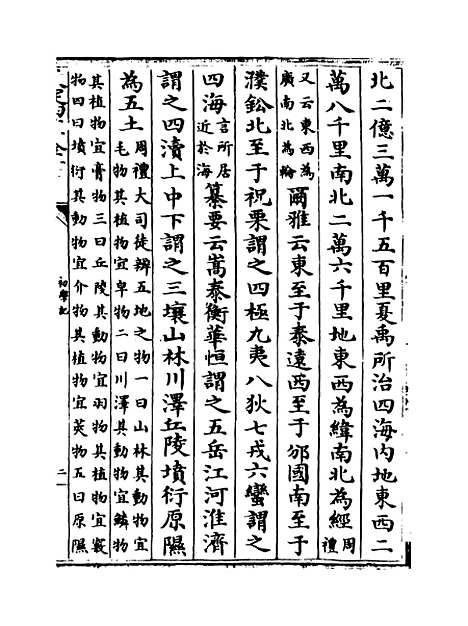 北二億三萬一千五百里夏禹所治四海内地東西二
萬八千里南北二萬六千里地東西為緯南北為經周禮
又云東西為廣南北為輪爾雅云東至于泰遠西至于邠國南至于
濮鈆北至于祝栗謂之四極九夷八狄七戎六蠻謂之
四海言所居近於海纂要云嵩泰衡華恒謂之五岳江河淮濟
謂之四瀆上中下謂之三壤山林川澤丘陵墳衍原隰
為五土周禮大司徒辨五地之物一曰山林其動物宜毛物其植物宜皁物二曰川澤其動物宜鱗物
其植物宜膏物三曰丘陵其動物宜羽物其植物宜覈
物四曰墳衍其動物宜介物其植物宜莢物五曰原隰
初學記
二